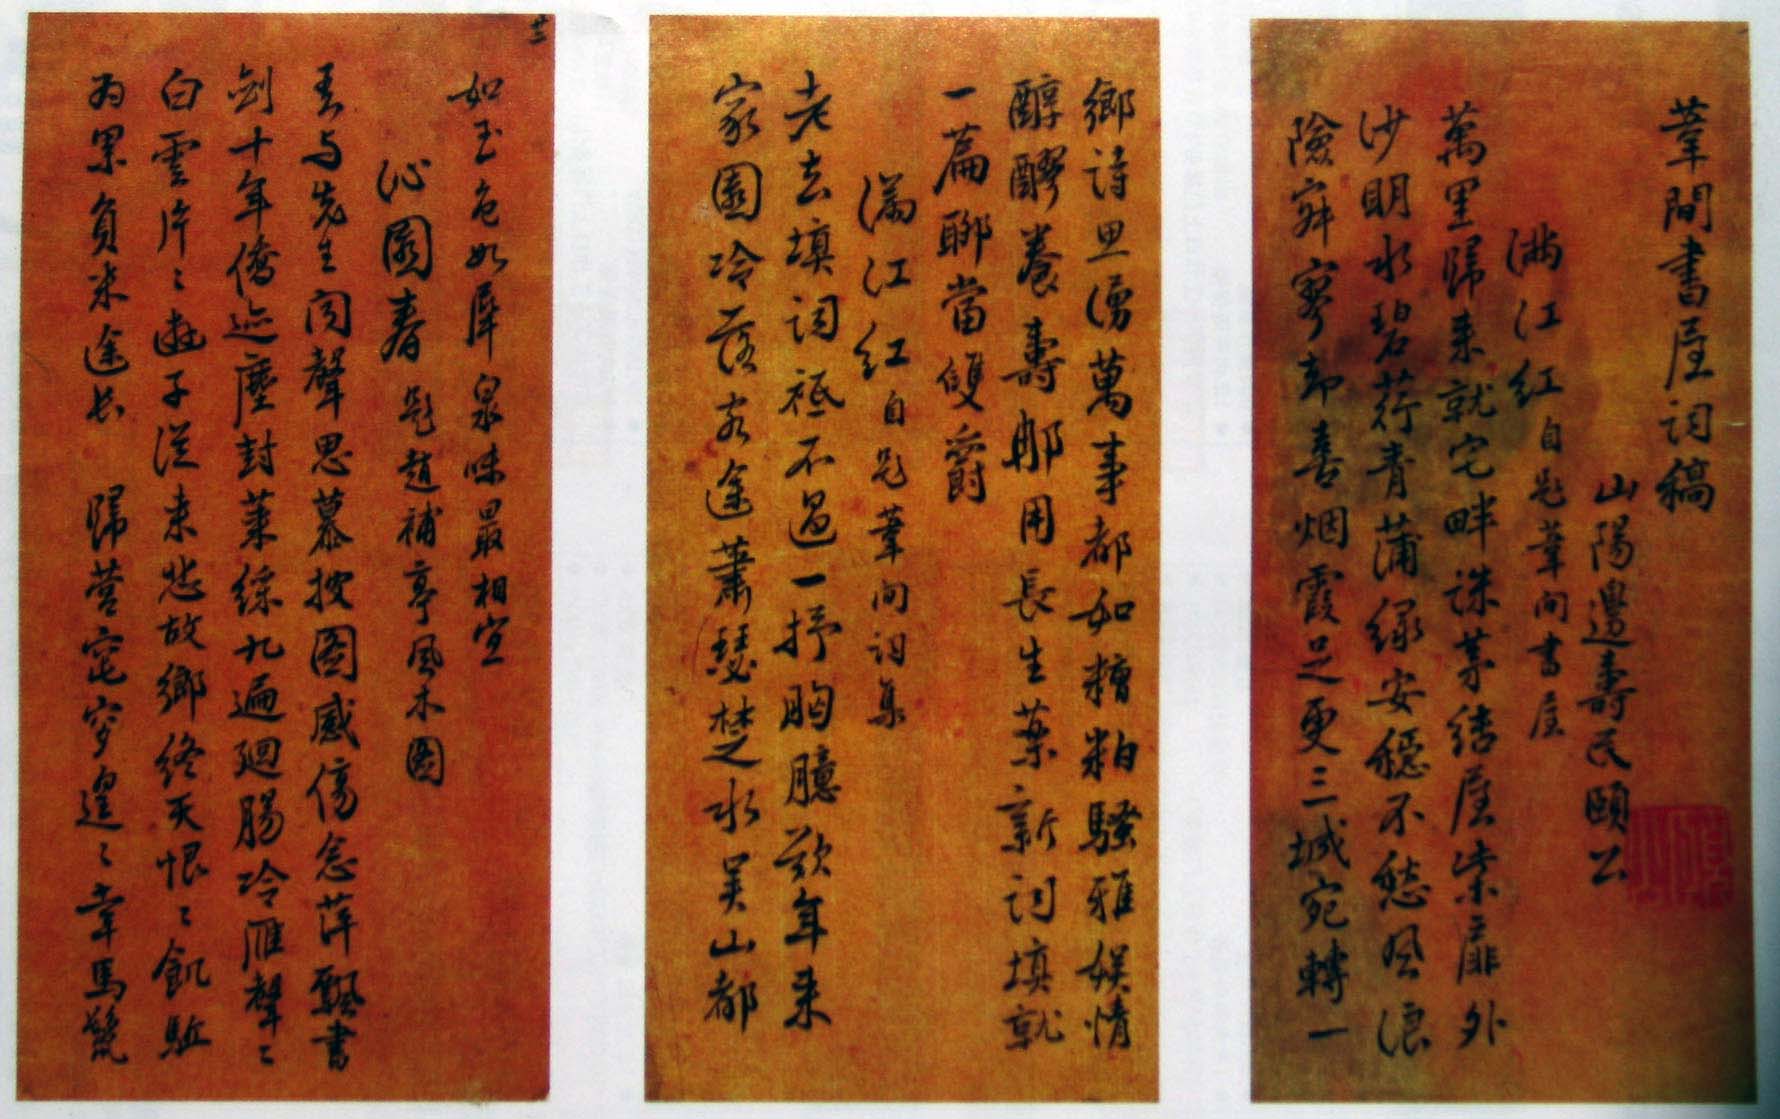 葦間書屋词稿
山陽邊壽民頤公
满江红自题葦间书屋
萬里歸来就宅畔誅茅结屋柴扉外
沙明水碧荇青蒲绿安穏不愁风浪
險寂寥却喜烟霞足更三城宛轉一
鄉诗思湧萬事都如糟粕騷雅娱情
醇醪養壽那用長生藥新词填就
一篇聊當雙爵
满江红自题葦间词集
老去填词衹不過一抒胸臆歎年来
家園冷落客途蕭瑟楚水吴山都
如玉色如犀泉味最相宜
沁園春题趙補亭風木图
吾与先生同聲思慕按图感傷念萍飄書
剑十年僑迹塵封莱綵九遍廻腸冷雁聲〻
白雲片〻遊子從来悲故鄉终天恨〻飢驅
为累負米途长 歸營窀穸遑〻幸馬鬣